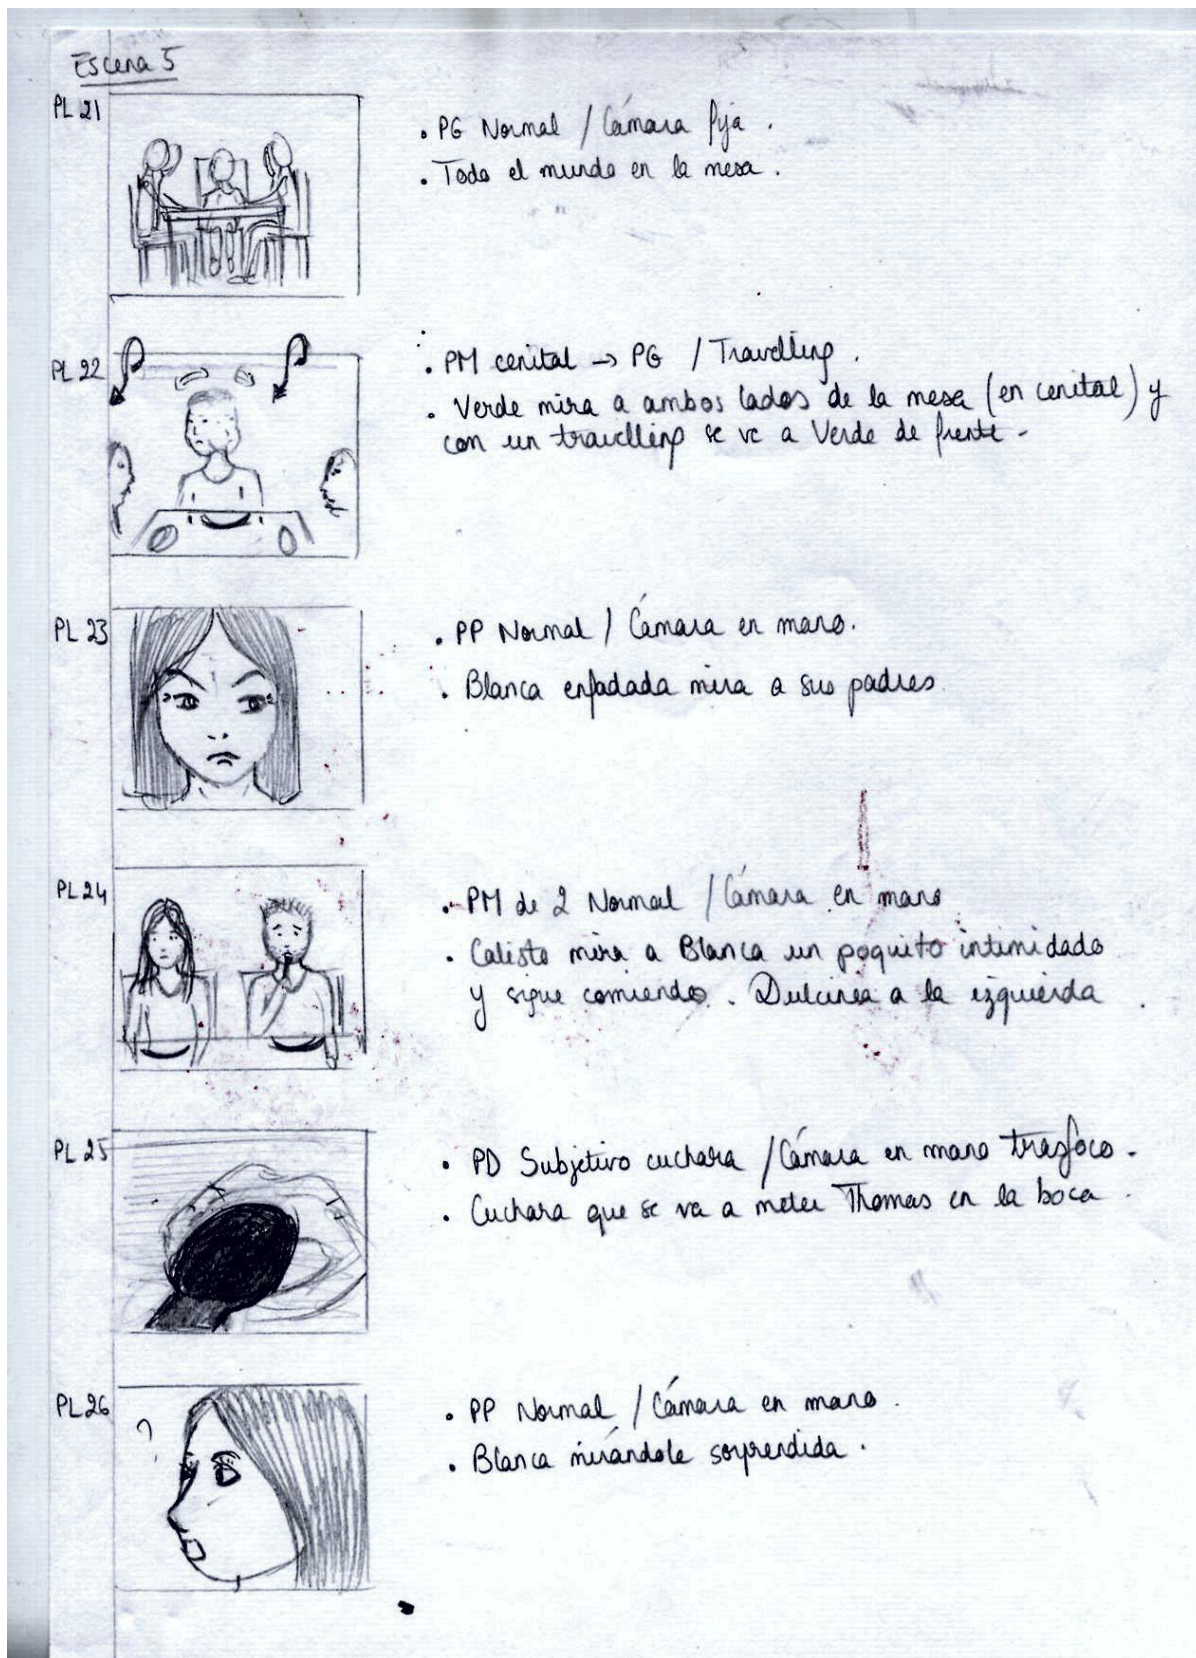 Escena 5
PL 21
. PG Normal / Cámara fija .
. Todo el mundo en la mesa .
PL 22
. PM cenital → PG / Travelling .
. Verde mira a ambos lados de la mesa (en cenital) y
con un travelling se ve a Verde de frente -
PL 23
. PP Normal / Cámara en mano.
. Blanca enfadada mira a sus padres
PL 24
. PM de 2 Normal / Cámara en mano
. Calisto mira a Blanca un poquito intimidado
y sigue comiendo . Dulcinea a la izquierda .
PL 25
. PD Subjetivo cuchara / Cámara en mano trasfoco .
. Cuchara que se va a meter Thomas en la boca .
PL 26
?
. PP Normal / Cámara en mano .
. Blanca mirándole sorprendida .